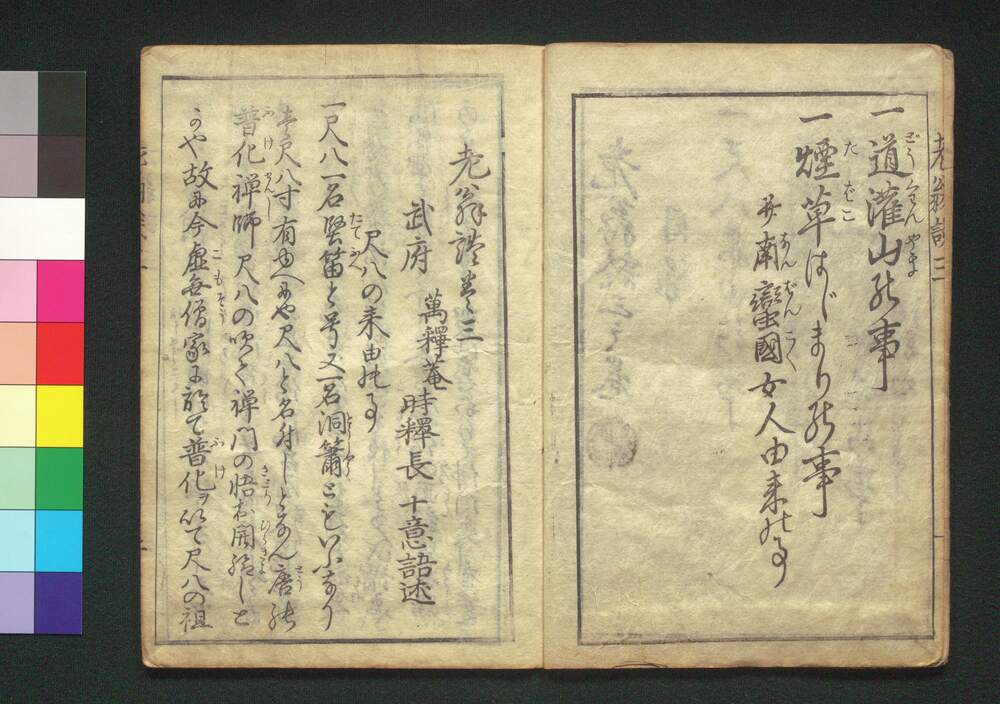 一道灌山の事
一煙草はじまりの事
并南蠻國女人由来の事
老翁談巻之三
武府 萬釋菴時釋長十意語述
尺八の来由の事
一尺八一名竪笛と号又一名洞簫ともいふなり
長尺八寸有ゆへにや尺八と名付しとなん唐の
普化禅師尺八の吹て禅門の悟お開給しと
かや故に今虚無僧家に於て普化ヲ以て尺八の祖